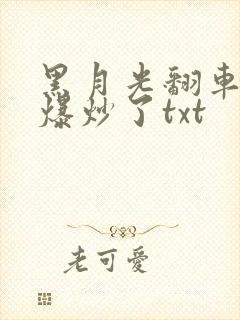 黑月光翻車
爆炒了txt
老可愛